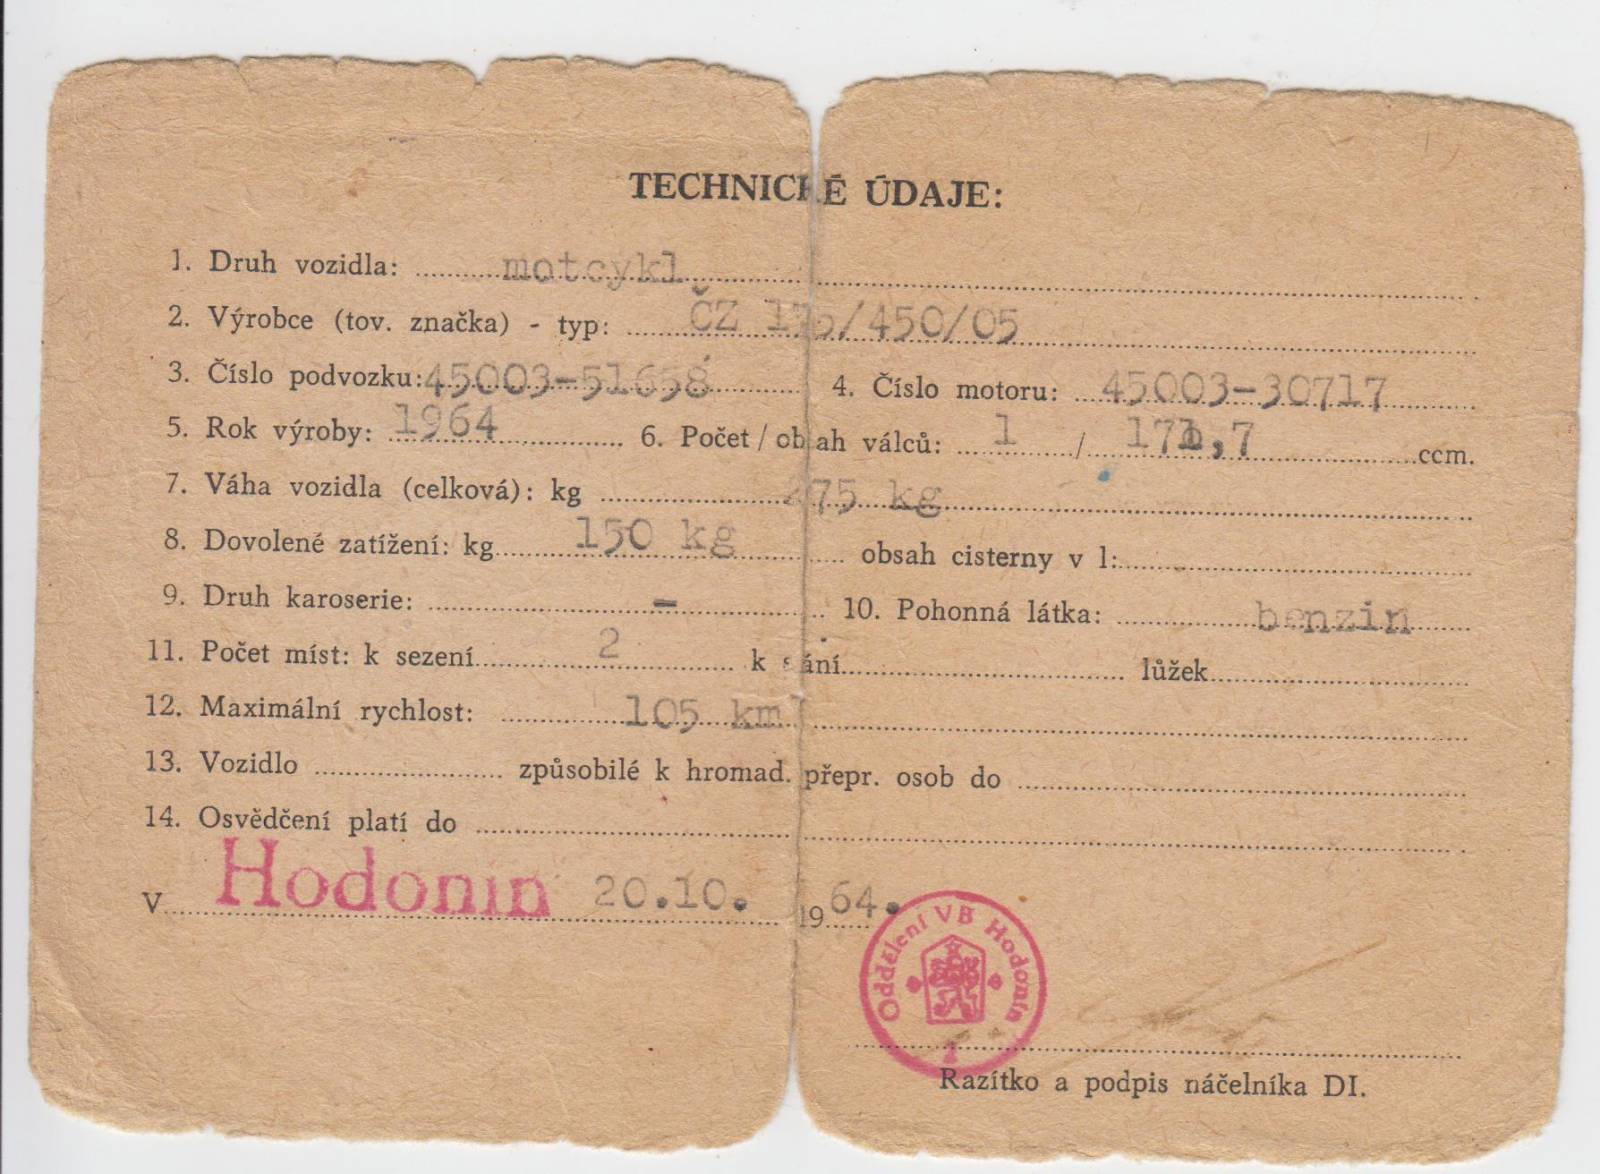 TECHNICKÉ ÚDAJE:
1. Druh vozidla: motcykl
2. Výrobce (tov. značka) - typ: ČZ 175/450/05
3. Číslo podvozku: 45003-51658 4. Číslo motoru: 45003-30717
5. Rok výroby: 1964 6. Počet/obsah válců: 1 / 171,7 ccm.
7. Váha vozidla (celková): kg 275 kg
8. Dovolené zatížení: kg 150 kg obsah cisterny v l:
9. Druh karoserie: - 10. Pohonná látka: benzin
11. Počet míst: k sezení 2 k stání lůžek
12. Maximální rychlost: 105 km
13. Vozidlo způsobilé k hromad. přepr. osob do
14. Osvědčení platí do
V Hodonín 20.10. 1964.
Oddělení VB Hodonín
1
Razítko a podpis náčelníka DI.